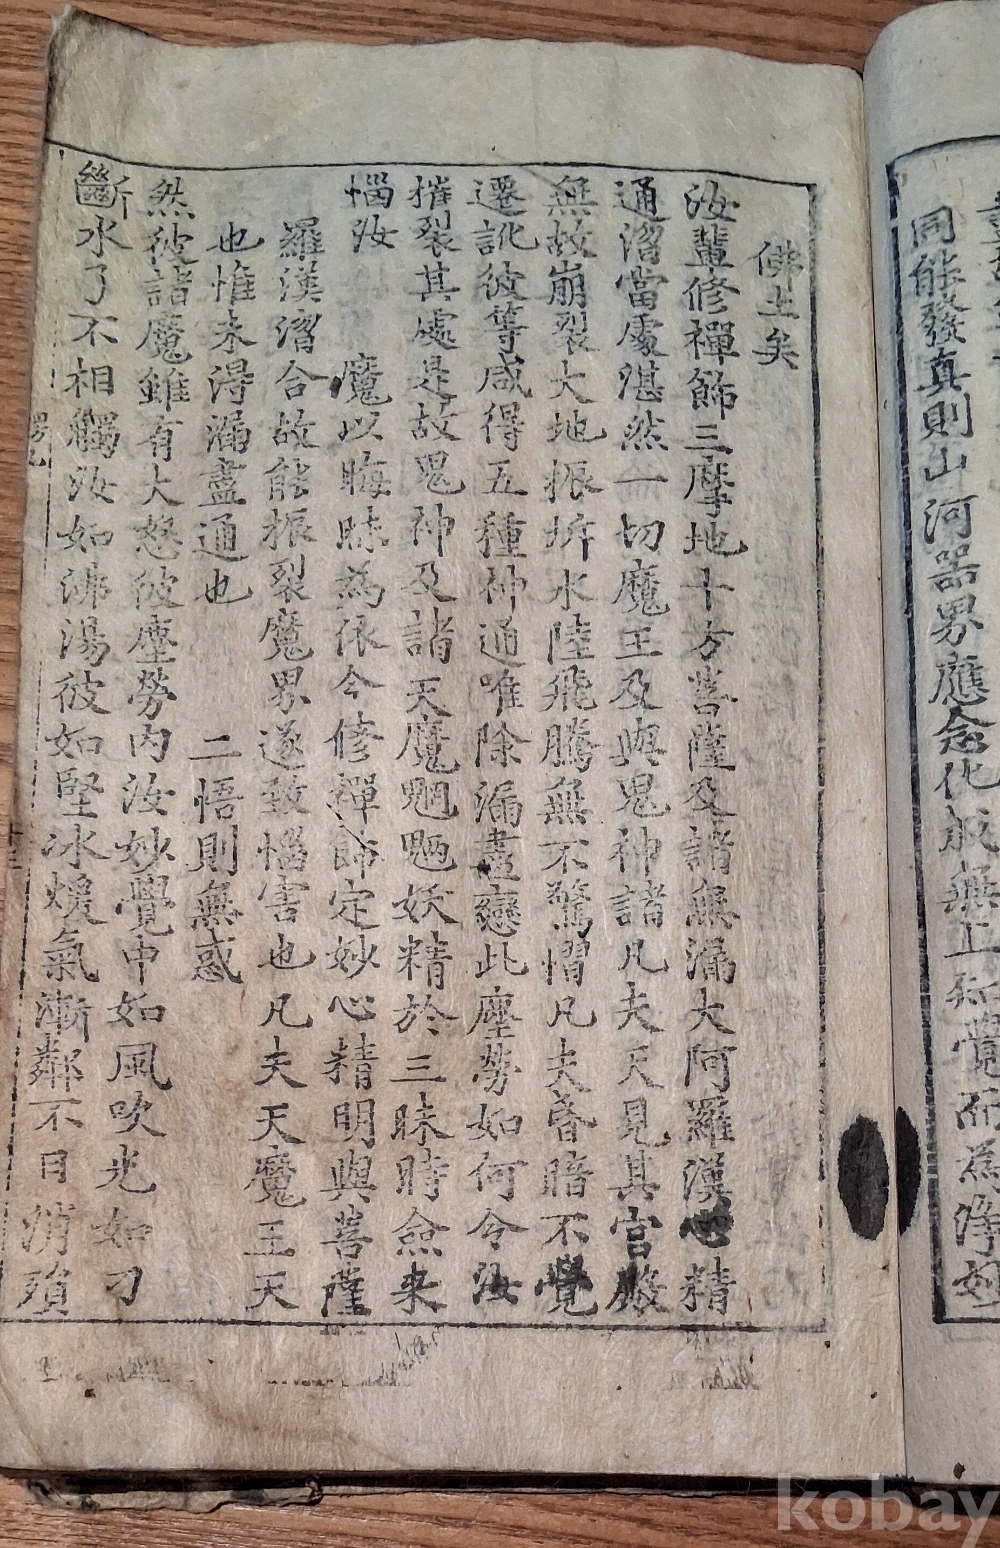 同能發真則山河器界應念化成無上知覺而為淨妙
佛土矣
汝輩修禪飾三摩地十方菩薩及諸無漏大阿羅漢心精
通㳷當處湛然一切魔王及與鬼神諸凡夫天見其宮殿
無故崩裂大地振坼水陸飛騰無不驚慴凡夫昏暗不覺
遷訛彼等咸得五種神通唯除漏盡戀此塵勞如何令汝
摧裂其處是故鬼神及諸天魔魍魎妖精於三昧時僉来
惱汝
魔以晦昧為依今修禪飾定妙心精明與菩薩
羅漢㳷合故能振裂魔界遂致惱害也凡夫天魔王天
也惟未得漏盡通也 二悟則無惑
然彼諸魔雖有大怒彼塵勞內汝妙覺中如風吹光如刀
斷水了不相觸汝如沸湯彼如堅冰煖氣漸鄰不日消殞
楞九
十三
kobay